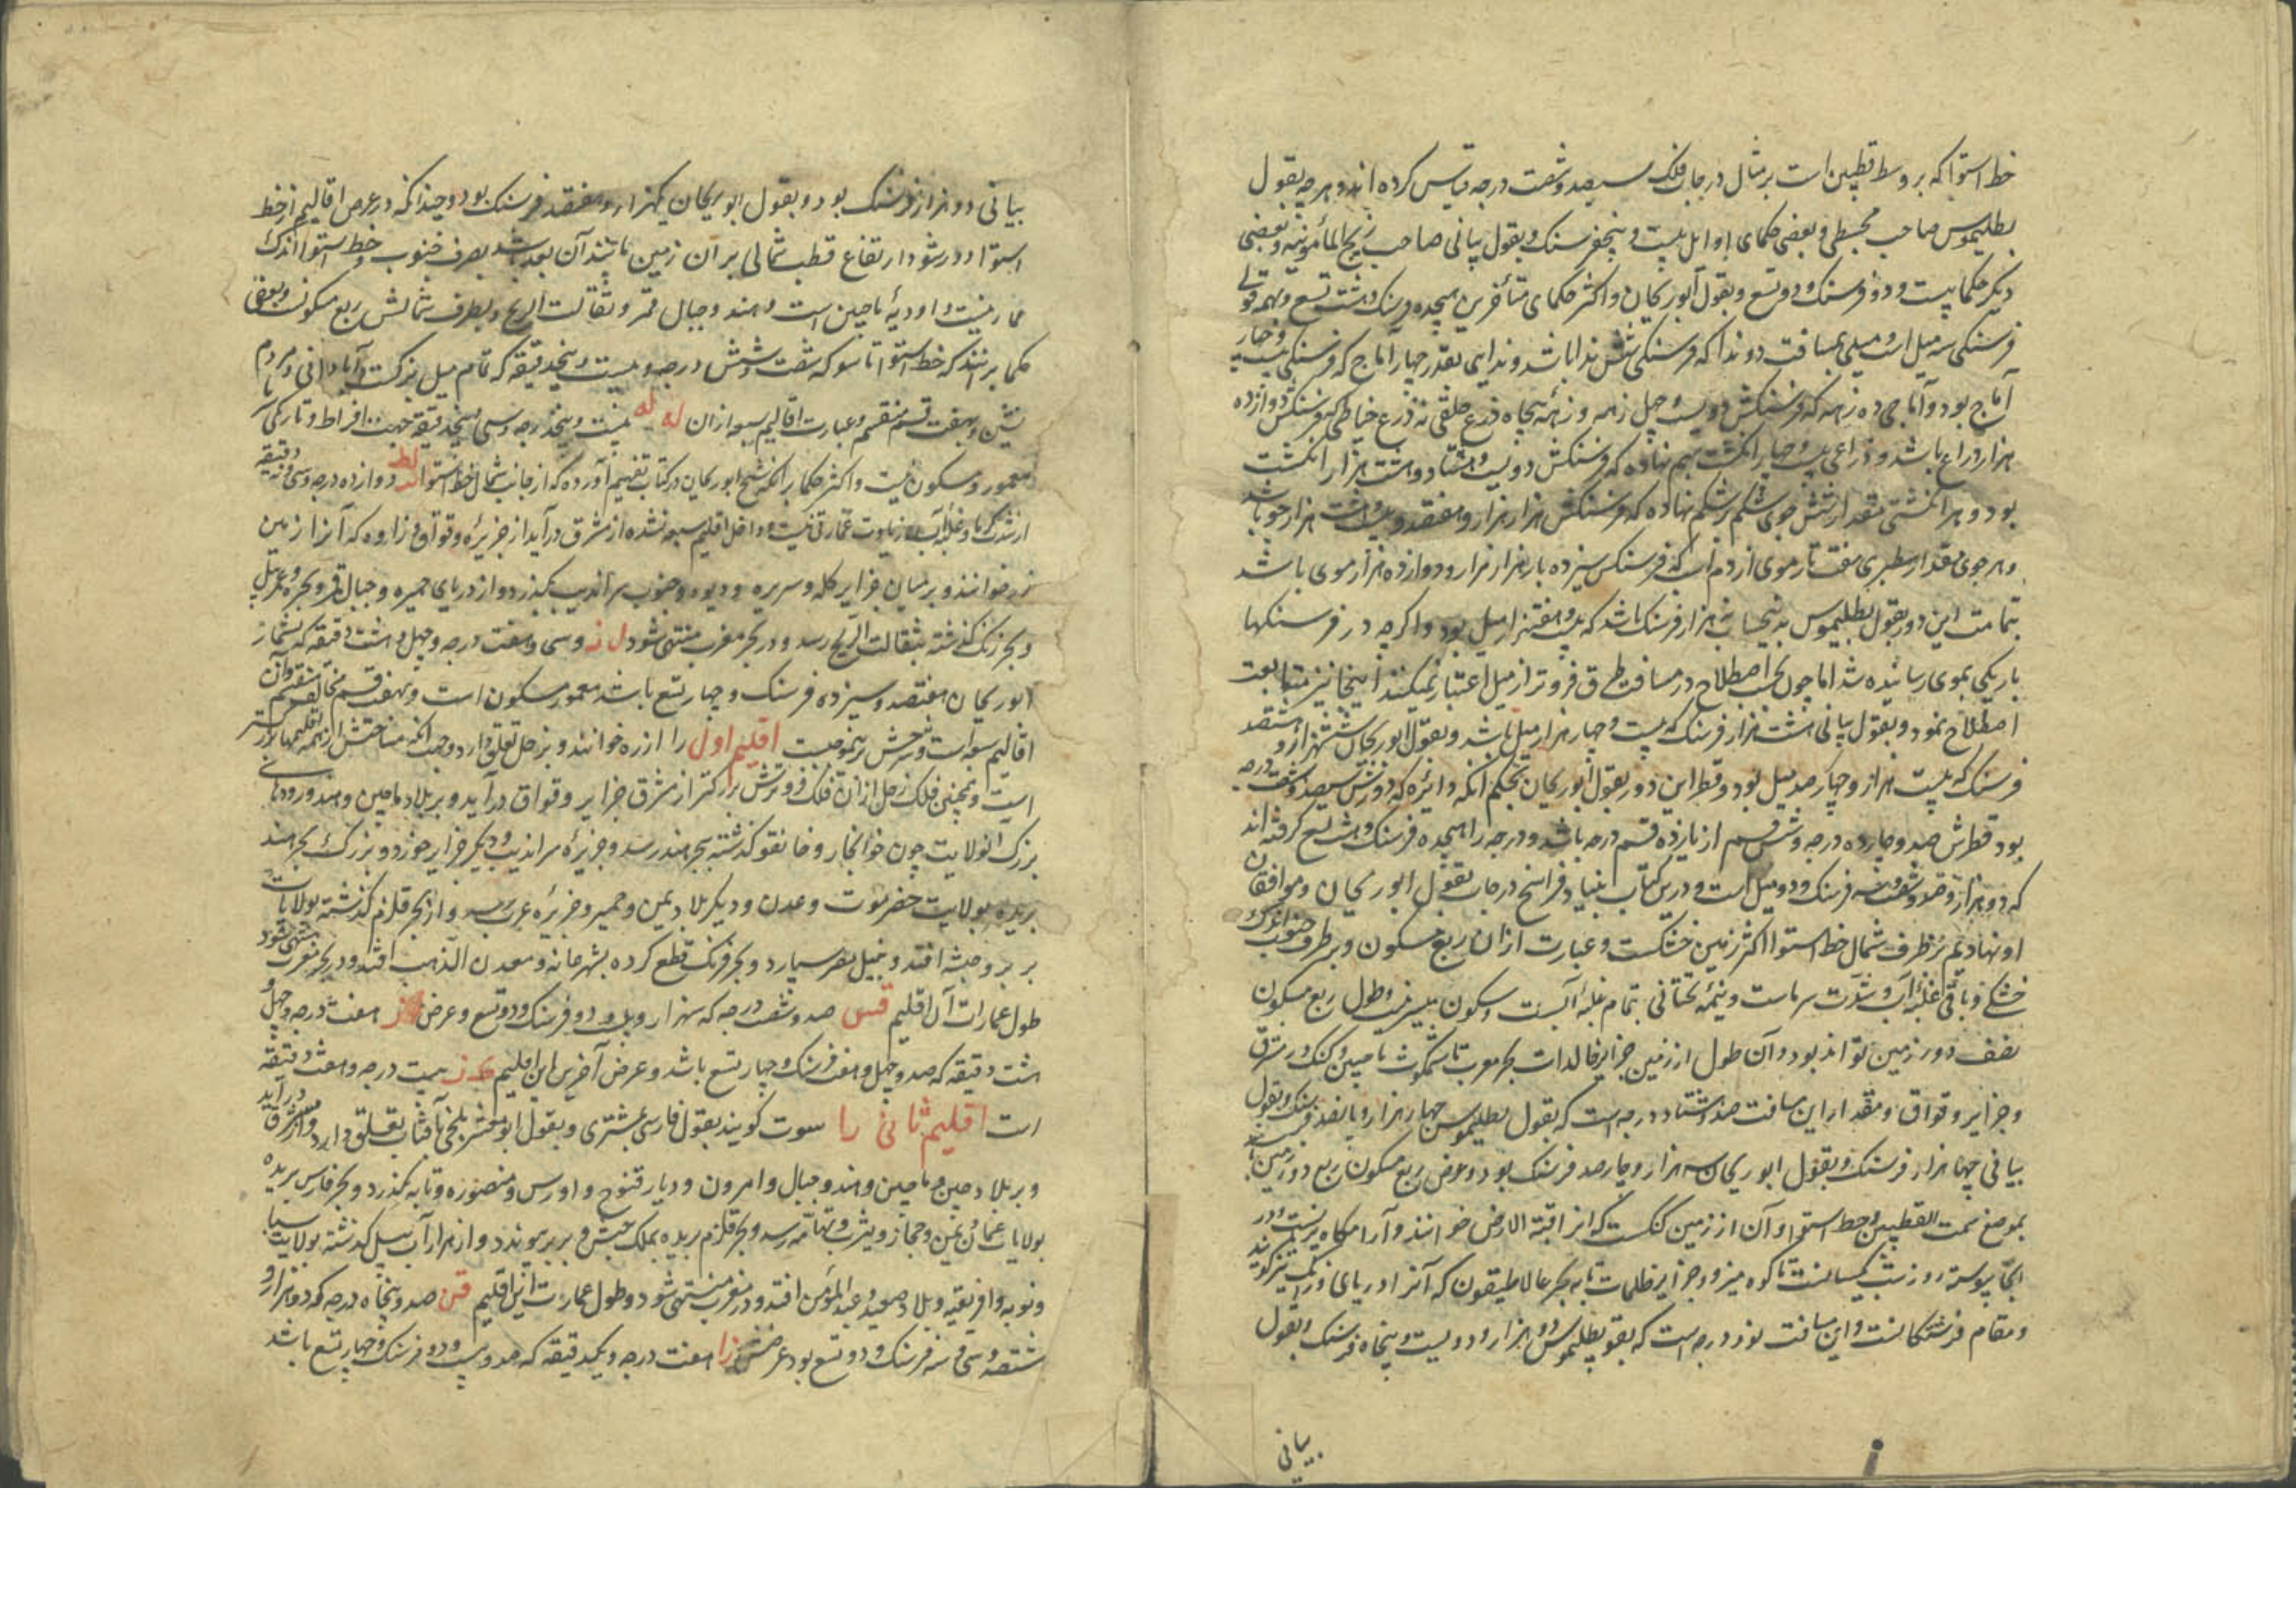 خط استوا که بر وسط قطبین است بر مثال درجات فلک سیصد و شصت درجه قیاس کرده اند و هر درجه بقول
بطلیموس صاحب مجسطی و بعضی حکمای اوایل بیست و پنج فرسنگ و بقول بیانی صاحب زیج المأمونیه و بعضی
دیگر حکما بیست و دو فرسنگ و دو تسع و بقول ابوریحان و اکثر حکمای متأخرین هیجده فرسنگ و هشت تسع و بهمه قولی
فرسنگی سه میل است و میلی بمسافت دو ندا که فرسنگی شش ندا باشد و ندایی بقدر چهار آماج که فرسنگی بیست و چهار
آماج بود و آماجی ده زهه که فرسنگش دویست و چهل زهه و زهه پنجاه ذرع خلقی نه ذرع خیاطی که فرسنگش دوازده
هزار ذراع باشد و ذراعی بیست و چهار انگشت بهم نهاده که فرسنگش دویست و هشتاد و هشت هزار انگشت
بود و هر انگشتی مقدار شش جو شکم بر شکم نهاده که فرسنگش هزار هزار و هفتصد و بیست و هشت هزار جو باشد
و هر جوی مقدار سطبری هفت تار موی از دم است که فرسنگی سیزده بار هزار هزار و دوازده هزار موی باشد
تمامت این دور بقول بطلیموس بدین حساب نه هزار فرسنگ باشد که بیست و هفت هزار میل بود و اگرچه در فرسنگها
باریکی بموی رسانیده شد اما چون بحسب اصطلاح در مسافت طرق فروتر از میل اعتبار نمیکنند اینجا نیز متابعت
اصطلاح نمود و بقول بیانی هشت هزار فرسنگ که بیست و چهار هزار میل باشد و بقول ابوریحان ششهزار و هشتصد
فرسنگ که بیست هزار و چهارصد میل بود و قطر این دور بقول ابوریحان بحکم آنکه دایره که دورش سیصد و شصت درجه
بود قطرش صد و چارده درجه و شش قسم از یازده قسم درجه باشد و درجه را هیجده فرسنگ و هشت تسع گرفته اند
که دو هزار و صد و شصت و سه فرسنگ و دو میل است و درین کتاب بنیاد فراسخ درجات بقول ابوریحان و موافقان
او نهادیم بر طرف شمال خط استوا اکثر زمین خشکست و عبارت از آن ربع مسکون و بر طرف جنوب اندک
خشکی و باقی غلبۀ آب و شدت سرماست و نیمۀ تحتانی بتمام غلبۀ آبست و سکون میسر نیست و طول ربع مسکون
نصف دور زمین تواند بود و آن طول از زمین جزایر خالدات بحر مغرب تا بماچین و کنگ در مشرق
و جزایر وقواق و مقدار این مسافت صد و هشتاد درجه است که بقول بطلیموس چهار هزار و پانصد فرسنگ و بقول
بیانی چهار هزار فرسنگ و بقول ابوریحان سه هزار و چارصد فرسنگ بود و عرض ربع مسکون ربع دور زمین باشد
بموضع سمت القطبین و خط استوا و آن از زمین کنگست که انرا قبة الارض خوانند و آرامگاه پریانست و در
آنجا پیوسته روز و شب یکسانست تا کوه و جزایر ظلمات تا به بحر حالاطیقون که آنرا دریای ورنگ نیز گویند
و مقام فرشتگانست و این مسافت نود درجه است که بقول بطلیموس دو هزار و دویست و پنجاه فرسنگ و بقول
بیانی
بیانی دو هزار فرسنگ بود و بقول ابوریحان یکهزار و هفتصد فرسنگ بود و چندانکه در عرض اقالیم از خط
استوا دور شود ارتفاع قطب شمالی بر آن زمین مانند آن بعد باشد بطرف جنوب خط استوا اندک
عمارتیست و اودیۀ ماچین است و هند و جبال قمر و ثقالت الریح و بطرف شمالش ربع مسکون و بعضی
حکما برانند که خط استوا تا سو که شصت و شش درجه و بیست و پنج دقیقه که تمام میل بزرگست آبادانی و مردم
نشین و بهفت قسم منقسم و عبارت اقالیم سبعه از آن له له بیست و پنج درجه و سی و پنج دقیقه جهت افراط و تاریکی
معمور و مسکون نیست و اکثر حکما برانکه شیخ ابوریحان در کتاب تفهیم آورده که از جانب شمال خط استوا لط دوازده درجه و سی و نه دقیقه
از شدت گرما و غلبۀ آب زیادت عمارتی نیست و داخل اقلیم سبعه نشده از مشرق در آید از جزیرۀ وقواق و زاوه که آنرا زمین
زر خوانند و بر میان جزایر کله و سریره و دیوه و جنوب سراندیب بگذرد و از دریای حمیره و جبال قمر و بحیره
و بحر زنگ گذشته بثقالت الریح رسد و در بحر مغرب منتهی شود ل ز و سی و هفت درجه و چهل و هشت دقیقه که بشمار
ابوریحان هفتصد و سیزده فرسنگ و چهار تسع باشد معمور مسکون است و بهفت قسم مخالف منقسم و آن
اقالیم سبعه است و شرحش برینموجبست اقلیم اول را ارزه خوانند و بزحل تعلق دارد و جهت آنکه مساحتش از همه اقلیمها بزرگتر
است و همچنین فلک زحل از آن فلک فروترش بزرگتر از مشرق جزایر وقواق در آید و بر بلاد ماچین و هند و رودهای
بزرگ آنولایت چون خوانجار و خانقو گذشته ببحر هند رسد و جزیرۀ سراندیب و دیگر جزایر خرد و بزرگ بحر هند
بریده بولایت حضرموت و عدن و دیگر بلاد یمن و حمیر و جزیرۀ عرب رسد و از بحر قلزم گذشته بولایات
بربر و حبشه افتد و بنیل مصر سپارد و بحر فرنگ قطع کرده بشهر خانه و معدن الذهب افتد و در بحر مغرب منتهی شود
طول عمارات آن اقلیم قس صد و شصت درجه که سهزار و بیست و دو فرسنگ و دو تسع و عرض ز هفت درجه و چهل و
هشت دقیقه که صد و چهل و هفت فرسنگ و چهار تسع باشد و عرض آخرین این اقلیم ک ز بیست درجه و هفت دقیقه
است اقلیم ثانی را سوت گویند بقول فارسی بمشتری و بقول ابومعشر بلخی بآفتاب تعلق دارد و از مشرق در آید
و بر بلاد چین و ماچین و هند و جبال و امرون و دیار قنوج و اورس و منصوره و تابه بگذرد و بحر فارس بریده
بولایات عمان و یمن و حجاز و یثرب و تهامه رسد و بحر قلزم بریده بملک حبش و بربر پیوندد و از هزار آب نیل گذشته بولایت سبا
و نوبه و افریقیه و بلاد صعید و عبد المؤمن افتد و در مغرب منتهی شود و طول عمارت این اقلیم قن صد و پنجاه درجه که دو هزار و
ششصد و سی و سه فرسنگ و دو تسع بود عرضش زا هفت درجه و یکدقیقه که صد و سی و دو فرسنگ و چهار تسع باشد